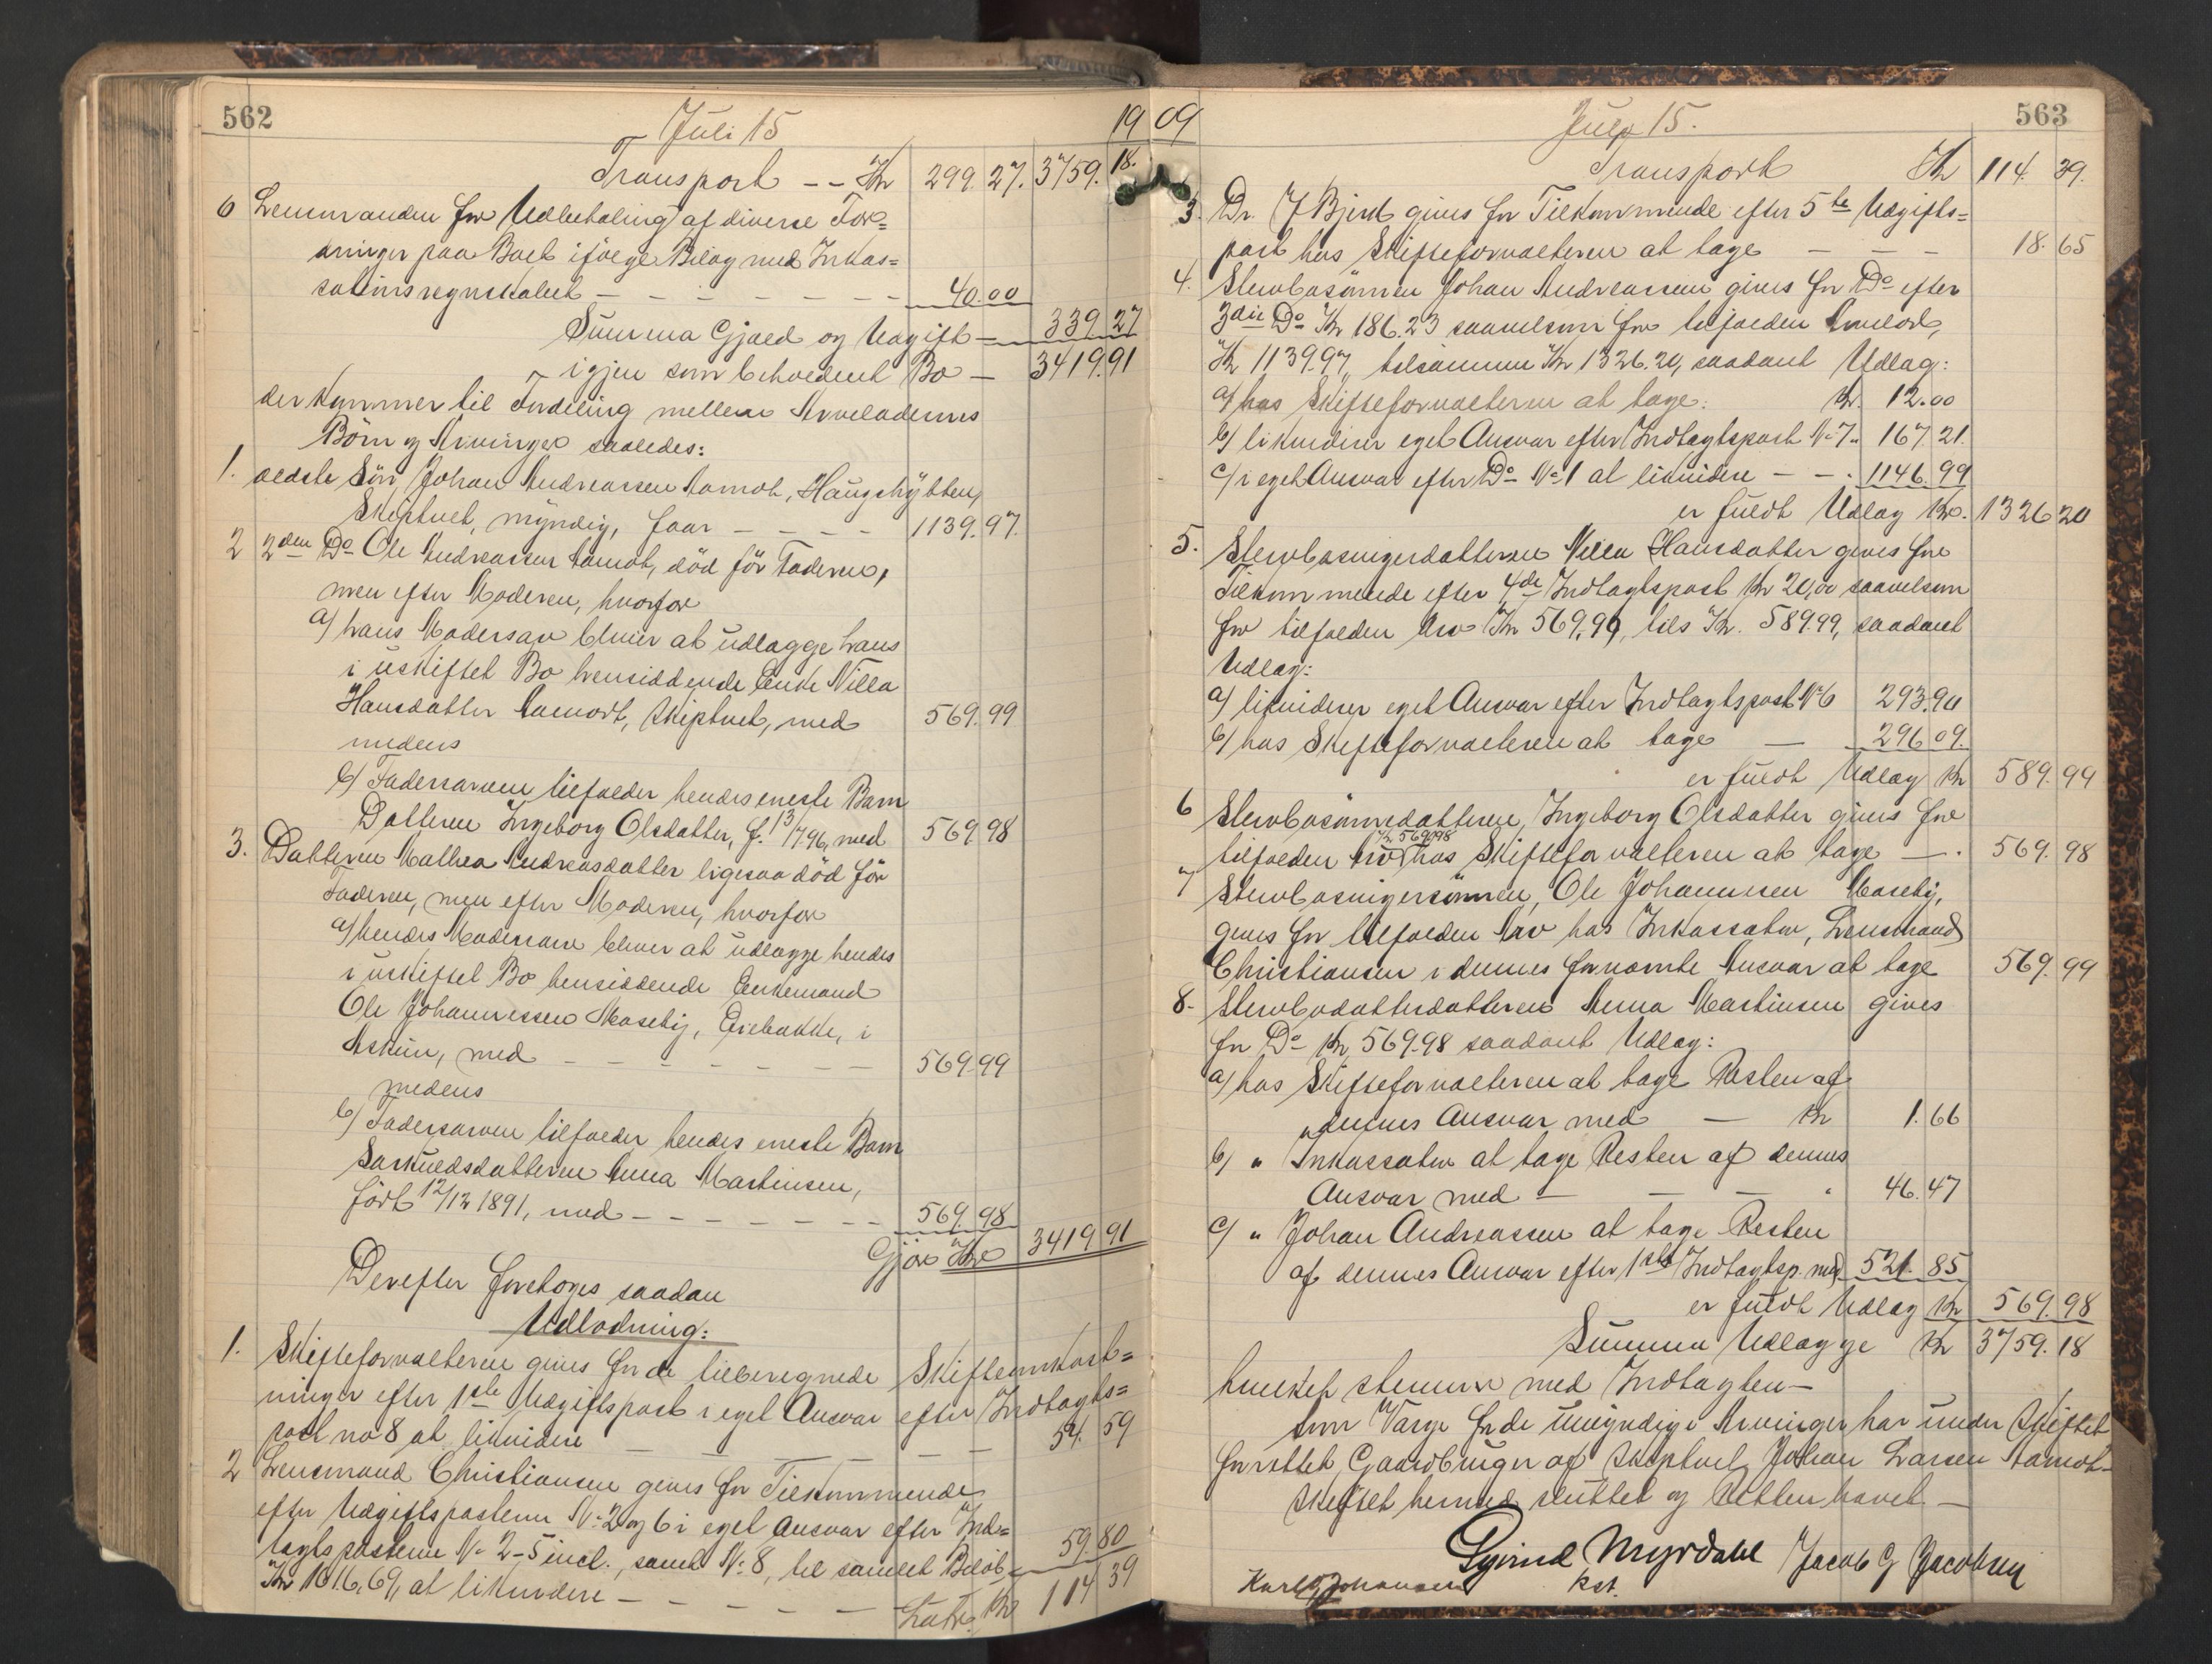 562
Juli 15
19
Transport -- Kr 299. 27. 3759. 18.
6 Lensmanden for Udbetaling af diverse For=
dringer paa Boet ifølge Bilag med Inkas=
sationsregnskabet - - - - - - 40.00
Summa Gjæld og Udgift - 339 27
igjen som beholdent Bo - 3419.91
der kommer til Fordeling mellem Arveladernes
Børn og Arvinger saaledes:
1. ældste Søn Johan Andreassen Aamot, Haugshytten,
Skiptvet, myndig, faar - - - - 1139.97.
2 2den Do Ole Andreassen Aamot, død før Faderen,
men efter Moderen, hvorfor
a) hans Modersarv bliver at udlægge hans
i uskiftet Bo hensiddende Enke Nilla
Hansdatter Aamodt, Skiptvet, med 569.99
medens
b) Fadersarven tilfalder hendes eneste Barn
Datteren Ingeborg Olsdatter, f. 13/7 96, med 569.98
3. Datteren Mathea Andreasdatter ligesaa død før
Faderen, men efter Moderen, hvorfor
a) hendes Modersarv bliver at udlægge hendes
i uskiftet Bo hensiddende Enkemand
Ole Johannessen Moseby, i
Askim, med - - - - - - 569.99
medens
b) Fadersarven tilfalder hendes eneste Barn
Særkuldsdatteren Anna Martinsen,
født 12/12 1891, med - - - - - - - 569.98
Gjør Kr 3419 91
Derefter foretoges saadan
Udlodning:
1. Skifteforvalteren gives for de tilberegnede Skifteomkost=
ninger efter 1ste Udgiftspost i eget Ansvar efter Indtægts=
post no 8 at likvidere - - - - 54. 59
2 Lensmand Christiansen gives for Tilkommende
efter Udgiftsposterne No 2 og 6 i eget Ansvar efter Ind=
tægtsposterne No 2-5 incl., samt No 8, til samlet Beløb
Kr 1616,69, at likvidere - - - - - 59.80
Latus Kr 114 39
09
July 15.
563
Transport Kr 114. 39.
3. Dr. J Bjerk gives for Tilkommende efter 5te Udgifts=
post hos Skifteforvalteren at tage - - - 18.65
4. Stervbosønnen Johan Andreassen gives for Do efter
3die Do Kr 186.23 saavelsom for tilfalden Arvelod,
Kr 1139.97, tilsammen Kr 1326.20, saadant Udlæg:
a) hos Skifteforvalteren at tage: Kr. 12.00
b) likviderer eget Ansvar efter Indtægtspost No 7 " 167.21.
c) i eget Ansvar efter Do No 1 at likvidere - - . 1146.99
er fuldt Udlæg Kr. 1326 20
5. Stervbosvigerdatteren Nilla Hansdatter gives for
Tilkommende efter 4de Indtægtspost Kr 20,00 saavelsom
for tilfalden Arv Kr 569,99, tils Kr. 589.99, saadant
Udlæg:
a) likviderer eget Ansvar efter Indtægtspost No 6 293.90
b) hos Skifteforvalteren at tage - 296 09.
er fuldt Udlæg Kr 589.99
6 Stervbosønnedatteren, Ingeborg Olsdatter gives for
tilfalden Arv Kr 569.98 hos Skifteforvalteren at tage - . 569.98
7 Stervbosvigersønnen, Ole Johannesen Moseby,
gives for tilfalden Arv hos Inkassator, Lensmand
Christiansen i dennes fornævnte Ansvar at tage 569.99
8. Stervbodatterdatteren Anna Martinsen gives
for Do Kr 569.98 saadant Udlæg:
a) hos Skifteforvalteren at tage Resten af
dennes Ansvar med - Kr 1.66
b) " Inkassator at tage Resten af dennes
Ansvar med - - - " 46.47
c) " Johan Andreassen at tage Resten
af dennes Ansvar efter 1ste Indtægtsp. med 521.85
er fuldt Udlæg Kr 569.98
Summa Udlægge Kr 3759.18
hvilket stemmer med Indtægten -
Som Værge for de umyndige Arvinger har under Skiftet
forrettet Gaardbruger af Skiptvet Johan Larsen Aamot.
Skiftet hermed sluttet og Retten hævet. -
Eyvind Myrdahl Jacob G Jacobsen
Karl Johansen Kst.